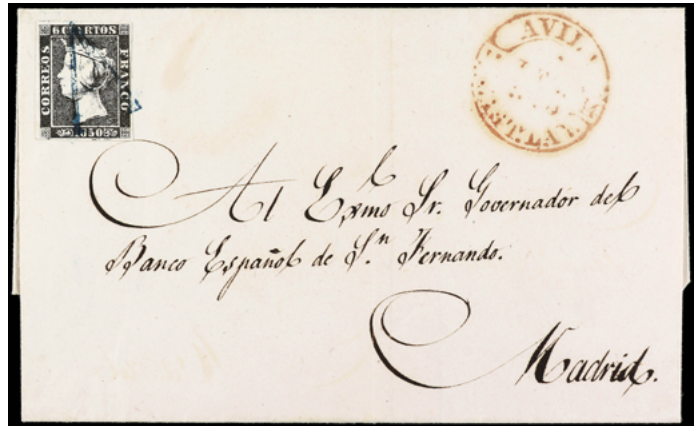 6 CUARTOS
CORREOS
FRANCO
1850
AVIL
CAST.LA V.
Al Exmo Sr. Governador del
Banco Español de S.n Fernando.
Madrid.